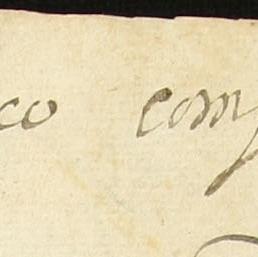 co com